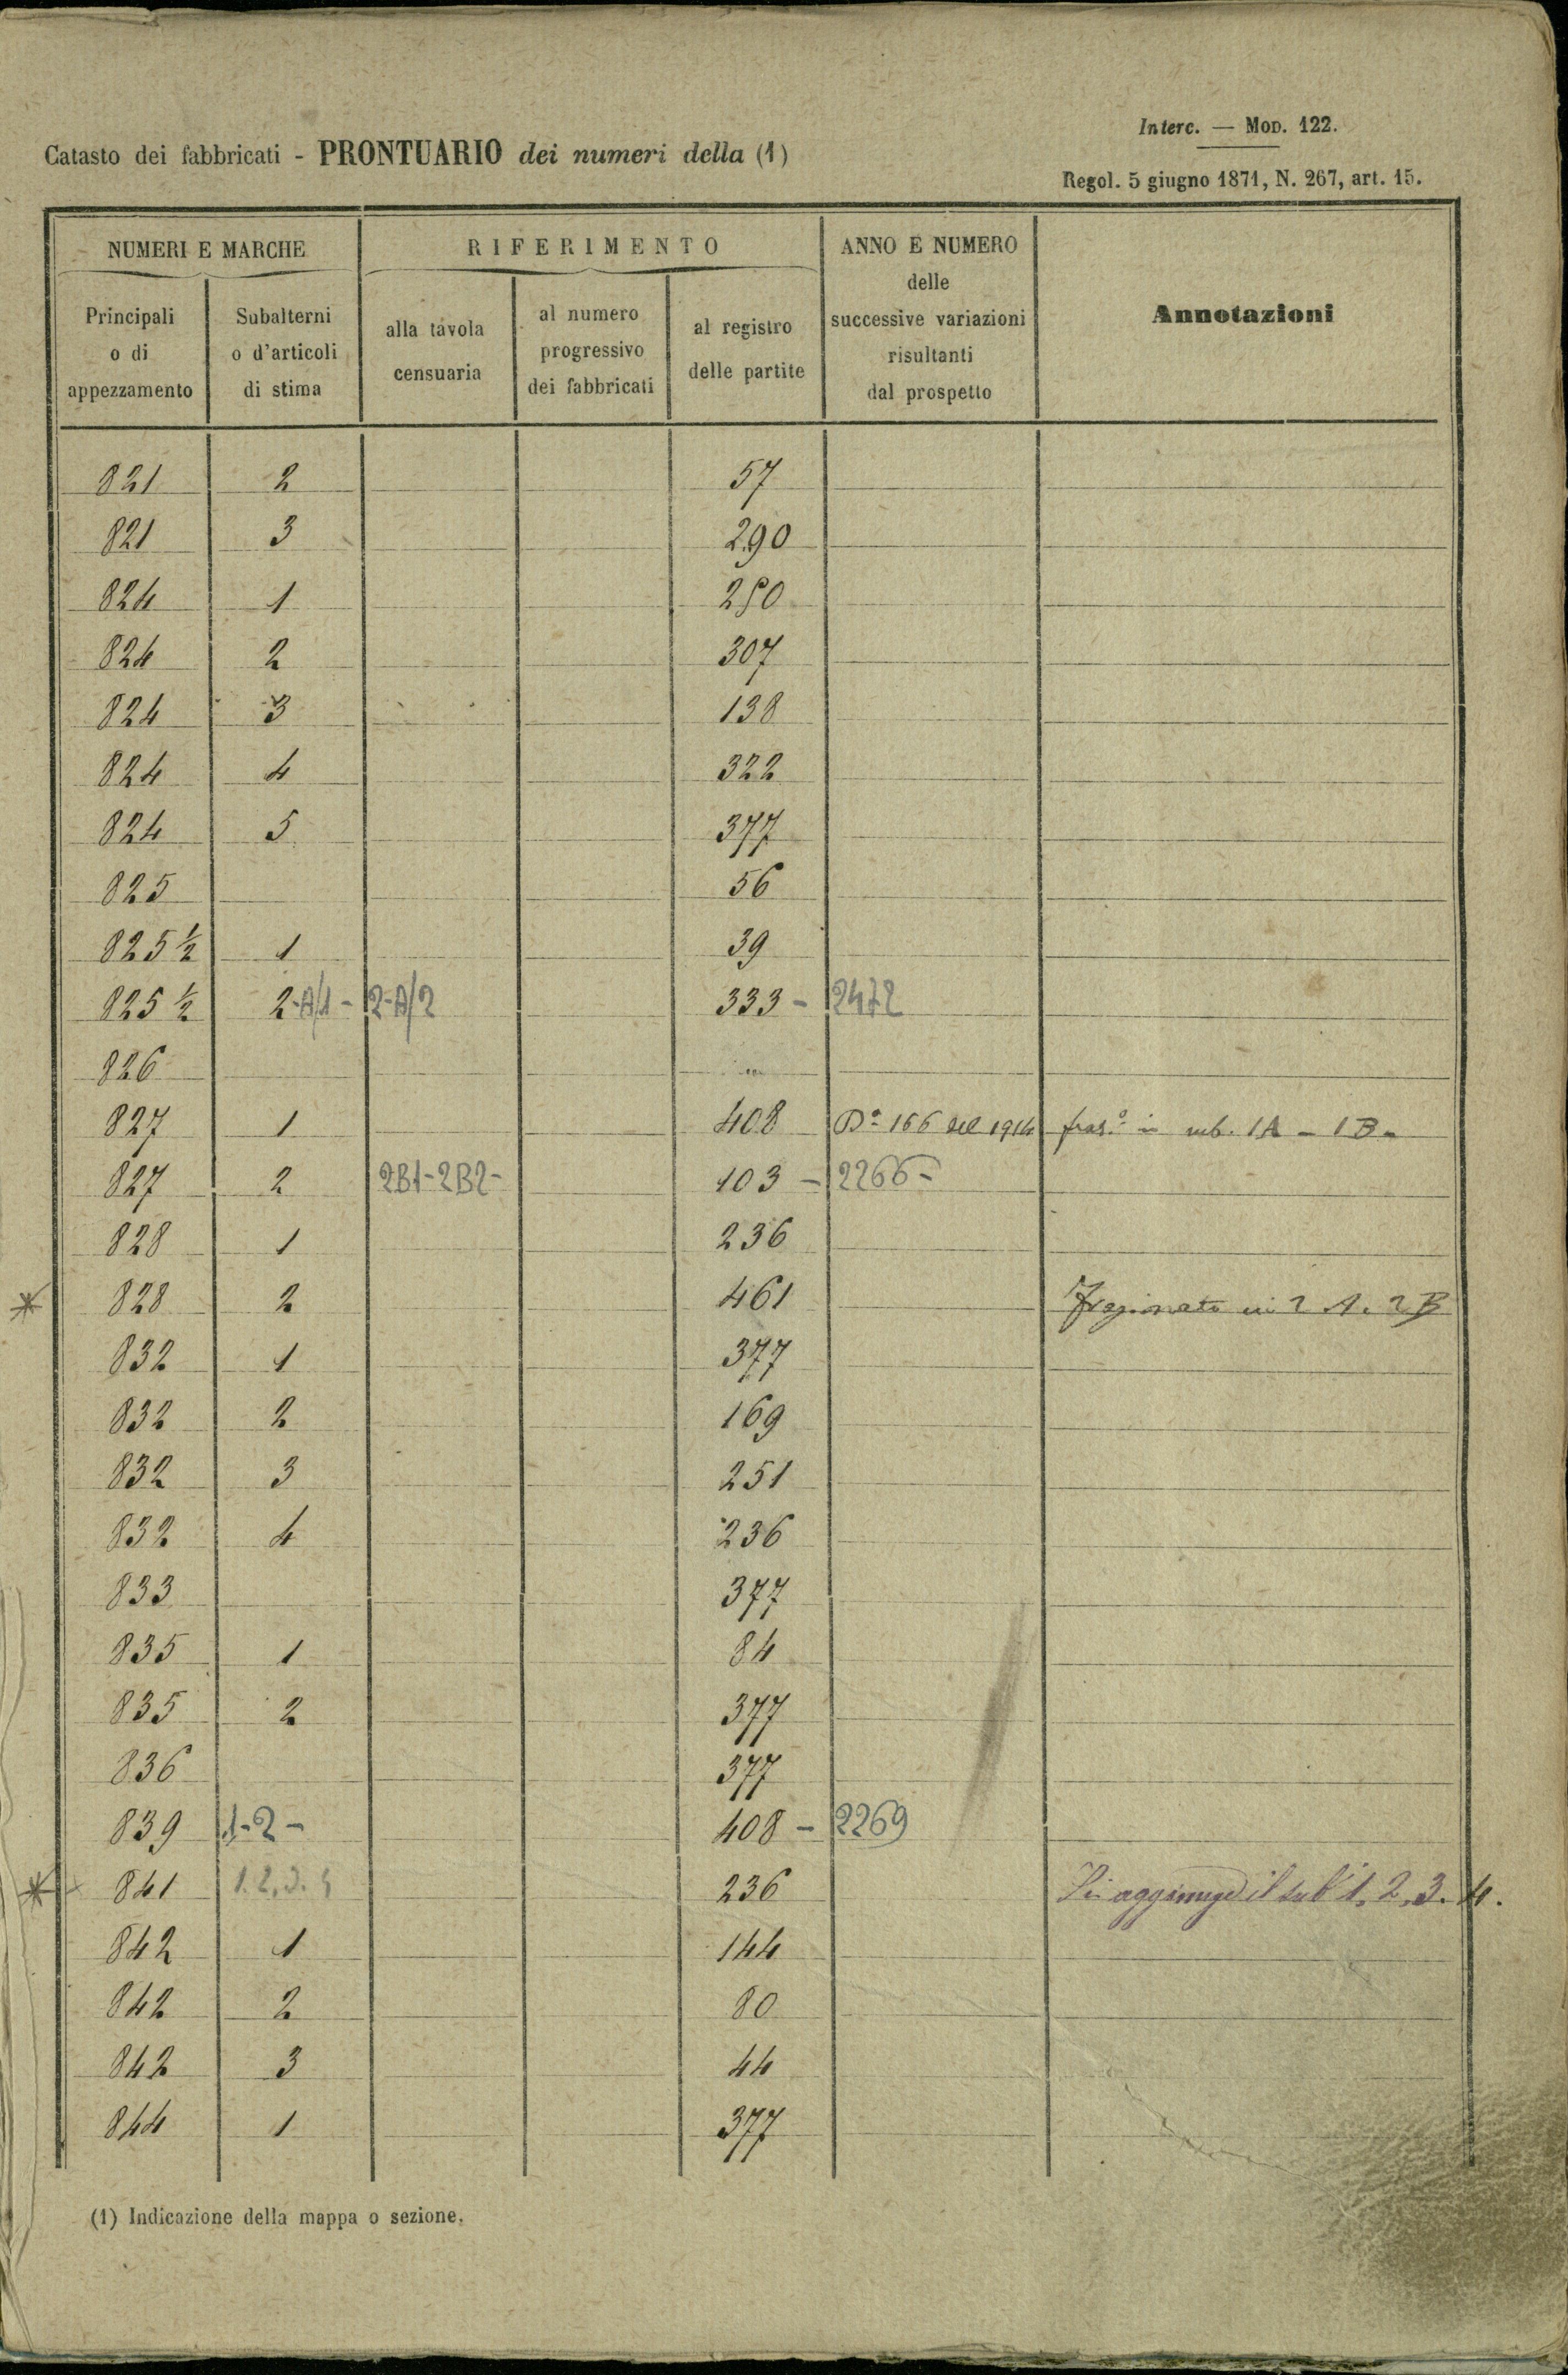 Interc. — Mod. 122.
Catasto dei fabbricati - PRONTUARIO dei numeri della (1)
Regol. 5 giugno 1871, N. 267, art. 15.
NUMERI E MARCHE
RIFERIMENTO
ANNO E NUMERO
delle
successive variazioni
risultanti
dal prospetto
Annotazioni
Principali
o di
appezzamento
Subalterni
o d'articoli
di stima
alla tavola
censuaria
al numero
progressivo
dei fabbricati
al registro
delle partite
821 2 57
821 3 290
824 1 250
824 2 307
824 3 138
824 4 322
824 5 377
825 56
825 ½ 1 39
825 ½ 2-A/1 - 2-A/2 333 - 2472
826
827 1 408 Dª 166 del 1914 fraz.º in sub. 1A - 1B -
827 2 2B1-2B2- 103 - 2266 -
828 1 236
* 828 2 461 Frazionato in 2 A. 2 B
832 1 377
832 2 169
832 3 251
832 4 236
833 377
835 1 84
835 2 377
836 377
839 1-2 - 408 - 2269
* 841 1. 2, 3. 4 236 Si aggiunge il sub 1, 2, 3. 4.
842 1 144
842 2 80
842 3 44
844 1 377
(1) Indicazione della mappa o sezione.